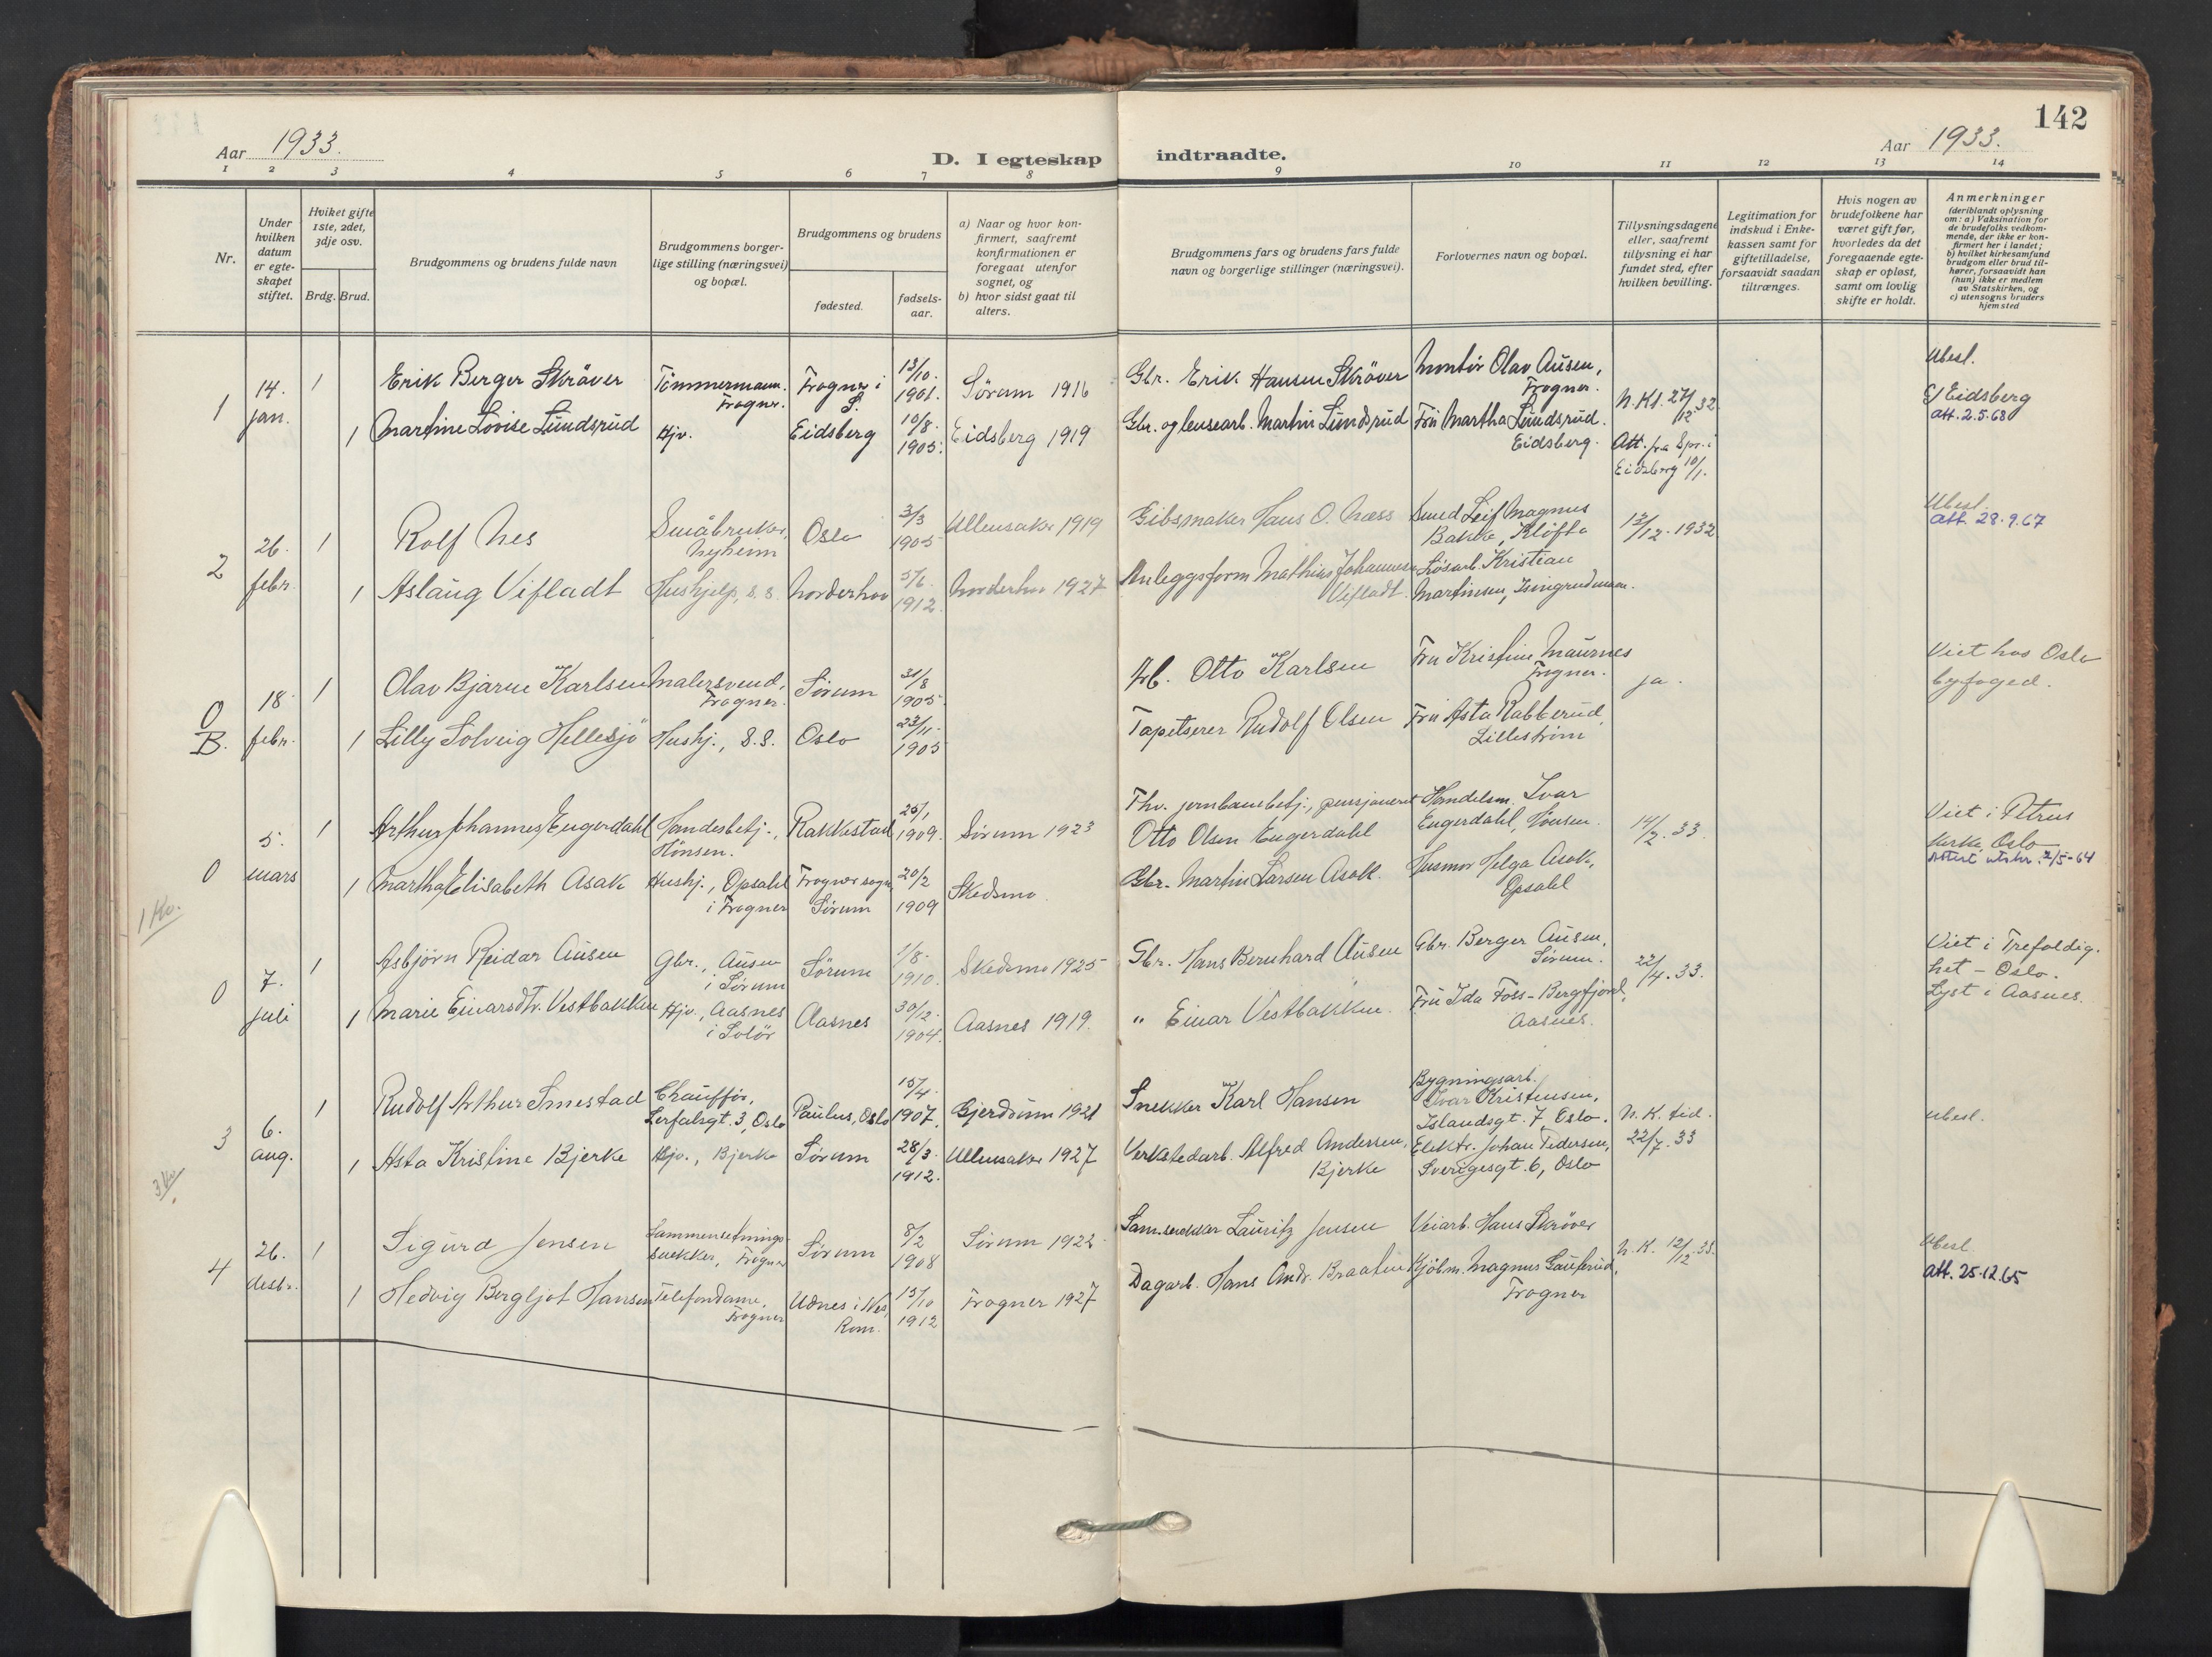 142
Aar 1933.
D. I egteskap indtraadte.
Aar 1933.
1 2 3 4 5 6 7 8 9 10 11 12 13 14
Nr.
Under hvilken datum er egte-skapet stiftet.
Hviket gifte 1ste, 2det, 3dje osv.
Brdg. Brud.
Brudgommens og brudens fulde navn
Brudgommens borger-lige stilling (næringsvei) og bopæl.
Brudgommens og brudens
fødested.
fødsels-aar.
a) Naar og hvor kon-firmert, saafremt konfirmationen er foregaat utenfor sognet, og
b) hvor sidst gaat til alters.
Brudgommens fars og brudens fars fulde navn og borgerlige stillinger (næringsvei).
Forlovernes navn og bopæl.
Tillysningsdagene eller, saafremt tillysning ei har fundet sted, efter hvilken bevilling.
Legitimation for indskud i Enke-kassen samt for giftetilladelse, forsaavidt saadan tiltrænges.
Hvis nogen av brudefolkene har været gift før, hvorledes da det foregaaende egte-skap er opløst, samt om lovlig skifte er holdt.
Anmerkninger
(deriblandt oplysning om: a) Vaksination for de brudefolks vedkom-mende, der ikke er kon-firmert her i landet;
b) hvilket kirkesamfund brudgom eller brud til-hører, forsaavidt han (hun) ikke er medlem av Statskirken, og
c) utensogns bruders hjemsted
1 14. jan.
1 Erik Berger Skråver Tømmermann. Frogner. Frogner i S. 12/10. 1901. Sørum 1916 Gbr. Erik Hansen Skråver Montør Olav Ausen, Frogner. N.Kl. 27/12 32. Ubesl.
1 Martine Lovise Lundsrud Hjv. Eidsberg 10/8. 1905. Eidsberg 1919 Gbr. og lensearb. Martin Lundsrud Fru Martha Lundsrud. Eidsberg. Att. fra Spr. i Eidsberg 10/1. c/ Eidsberg
att. 2.5.68
2 26. febr.
1 Rolf Nes Småbruker, Nyheim Oslo 3/3 1905 Ullensaker 1919 Gibsmaker Hans O. Næss Smed Leif Magnus Bakke, Kløfta 12/12. 1932 Ubesl.
att. 28.9.67
1 Aslaug Vifladt Hushjelp, s.s. Norderhov 5/6. 1912. Norderhov 1927 Anleggsform. Mathias Johannesen Vifladt. Løsarb. Kristian Martinsen,
O B. 18. febr.
1 Olav Bjarne Karlsen Malersvend, Frogner. Sørum 31/8 1905. Arb. Otto Karlsen Fru Kristine Maurnes Frogner. ja. Viet hos Oslo byfoged.
1 Lilly Solveig Hellesjø Hushj., s.s. Oslo 23/11. 1905 Tapetserer Rudolf Olsen Fru Asta Rabberud, Lillestrøm
O 5. mars
1 Arthur Johannes Engerdahl Handesbetj., Hønsen. Rakkestad 25/1 1909. Sørum 1923 Fhv. jernbanebetj., pensjonert Otto Olsen Engerdahl Handelsm. Ivar Engerdahl, Hønsen. 14/2. 33. Viet i Petrus kirke, Oslo
Attest utskr. 2/5-64
1 Martha Elisabeth Asak Hushj., Opsahl i Frogner Frogner sogn Sørum 20/2 1909 Skedsmo. Gbr. Martin Larsen Asak. Husmor Helga Asak, Opsahl
1 Kv.
O 7. juli
1 Asbjørn Reidar Ausen Gbr., Ausen i Sørum Sørum 1/8. 1910. Skedsmo 1925 Gbr. Hans Bernhard Ausen Gbr. Berger Ausen, Sørum. 22/4. 33. Viet i Trefoldig.het - Oslo.
Lyst i Aasnes.
1 Marie Einarsdtr. Vestbakken Hjv., Aasnes i Solør Aasnes 30/12. 1904. Aasnes 1919. " Einar Vestbakken. Fru Ida Foss-Bergfjord, Aasnes.
3 6. aug.
1 Rudolf Arthur Smestad Chauffør, Jerfalsgt. 3, Oslo Paulus, Oslo 15/4. 1907. Gjerdrum 1921 Snekker Karl Hansen Bygningsarb. Ivar Kristensen, Islandsgt. 7, Oslo. N. K. tid. 22/7. 33 Ubesl.
1 Asta Kristine Bjerke Hjv., Bjerke Sørum 28/3. 1912. Ullensaker 1927 Verkstedarb. Alfred Andersen, Bjerke Elektr. Johan Pedersen, Sverigesgt. 6, Oslo
3 Kv.
4 26. desbr.
1 Sigurd Jensen Sammensetnings-snekker, Frogner Sørum 8/2 1908 Sørum 1922 Sam.snekker Lauritz Jensen Veiarb. Hans Skrøver N. K. 12/12. 33. Ubesl.
att. 25.12.65
1 Hedvig Bergljot Hansen Telefondame, Frogner Udnes i Nes, Rom. 15/10 1912 Frogner 1927 Dagarb. Hans Andr. Braaten Kjølm. Magnus Gauterud, Frogner